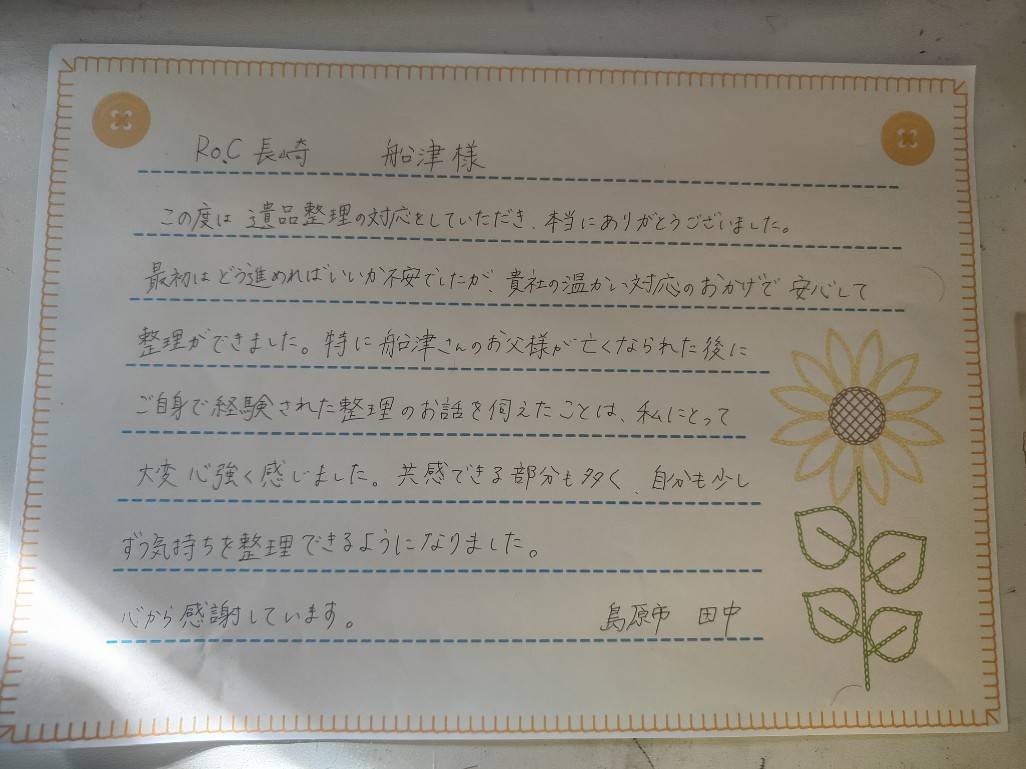 Ro.C 長崎 船津様
この度は遺品整理の対応をしていただき、本当にありがとうございました。
最初はどう進めればいいか不安でしたが、貴社の温かい対応のおかげで安心して
整理ができました。特に船津さんのお父様が亡くなられた後に
ご自身で経験された整理のお話を伺えたことは、私にとって
大変心強く感じました。共感できる部分も多く、自分も少し
ずつ気持ちを整理できるようになりました。
心から感謝しています。 島原市 田中